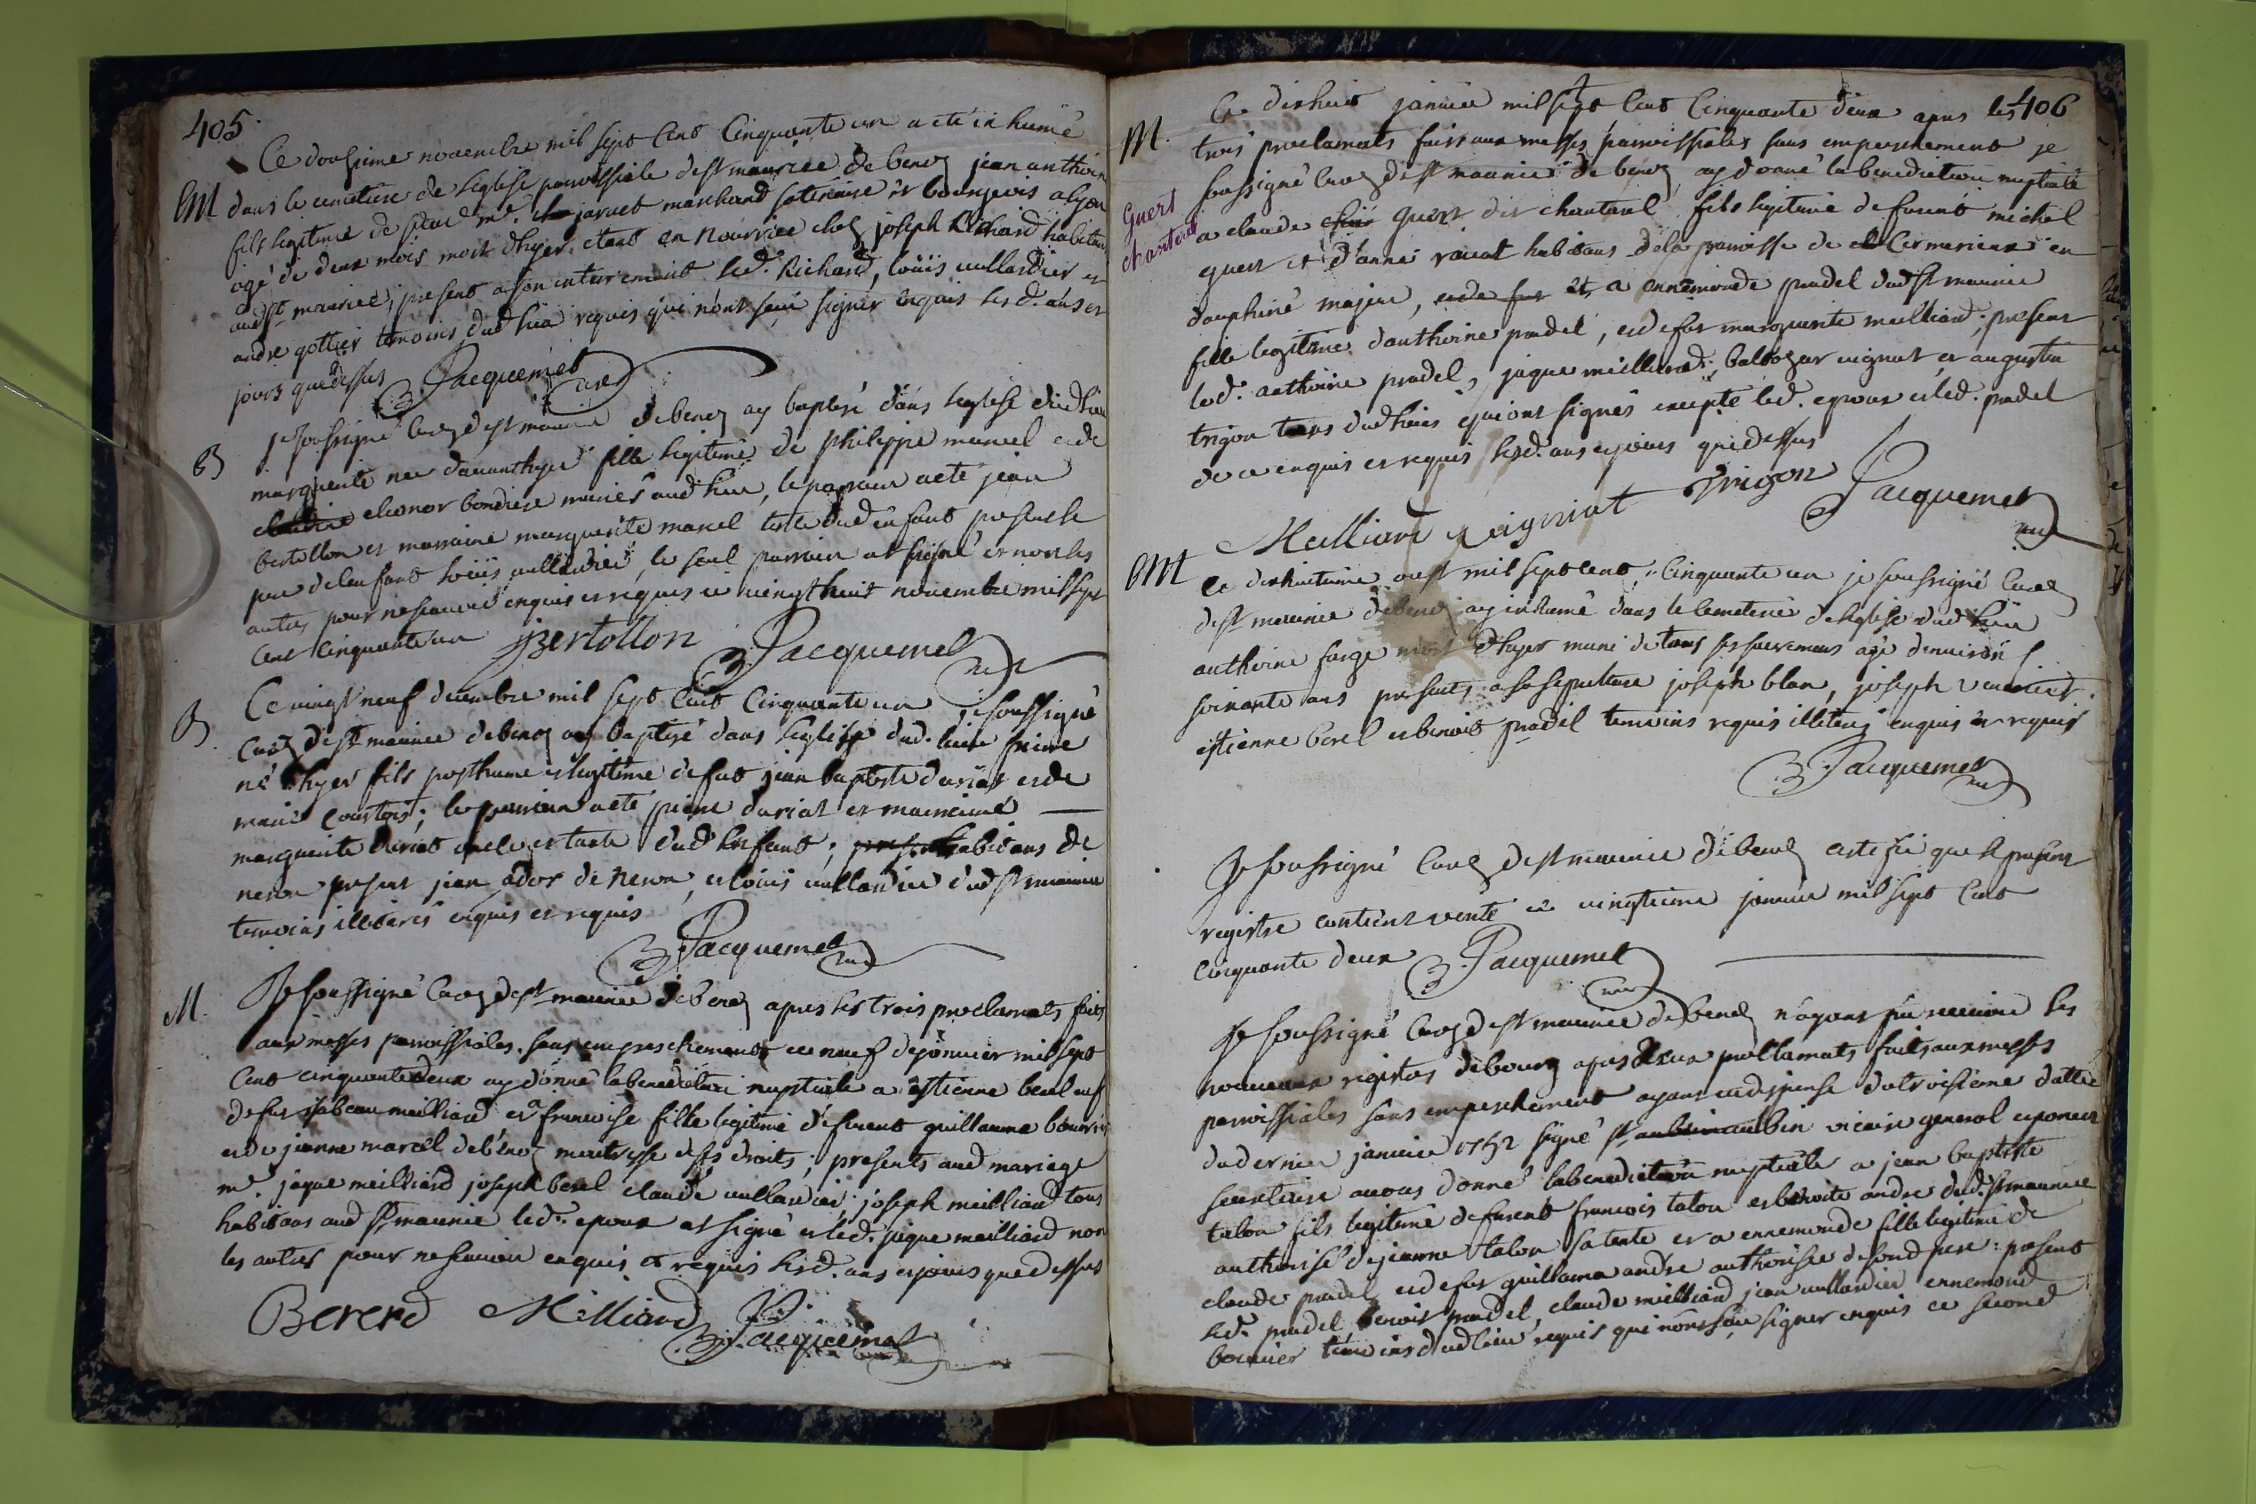 405.
Ce douzieme novembre mil sept cent cinquante un a eté inhumé
EM dans le cimetiere de leglise paroissiale de st maurice de benoz jean anthoine
fils legitime de sieur me. jarnet marchand satinaire et bourgeois a lyon
agé de deux mois mort d'hyer etant en nourrice chez joseph Richard habitant
aud st maurice; present a son enterrement led. Richard, loüis vullardier et
andre gottier temoins dud lieu requis qui n'ont sçeu signer enquis les d. ans et
jours que dessus Jacquemet curé
B Je soussigné curé de st maurice de benoz ay baptisé dans leglise dud lieu
marguerite nee d'avanthyer fille legitime de philippe marcel et de
claudine eleonor bondiere mariés aud lieu, le parrain a eté jean
bertollon et marraine marguerite marcel tante dud enfant present le
pere de lenfant loüis vullardier, le seul parrain at signé et non les
autres pour ne scavoir enquis et requis ce vingt huit novembre mil sept
cent cinquante un JBertollon Jacquemet curé
B. Ce vingt neuf decembre mil sept cent cinquante un je soussigné
curé de st maurice de benoz ay baptisé dans leglise dud. lieu pierre
né d'hyer fils posthume et legitime de fut jean baptiste duriat et de
marie courtois; le parrain a eté pierre duriat et marraine
marguerite duriat oncle et tante dud enfant; presens habitans de
neron present jean ador de neron, et loüis vullardier dud st maurice
temoins illiterés enquis et requis
Jacquemet curé
M. Je soussigné curé de st maurice de benoz apres les trois proclamats faits
aux messes paroissiales sans empeschement ce neuf de janvier mil sept
cent cinquante deux ay donné la benediction nuptiale a estienne berel veuf
de fut isabeau meilliard et a francoise fille legitime de furent guillaume bouvier
et de jeanne marcel de benoz maitresse de ses droits; presents aud mariage
me. jaque meilliard joseph berel claude vullardier; joseph meilliard tous
habitans aud st maurice led. epoux at signé et led. jaque meilliard non
les autres pour ne scavoir enquis et requis lesd. ans et jours que dessus
Bererd Milliard Jacquemet
406
M. Ce dixhuit janvier mil sept cent cinquante deux apres les
trois proclamats faits aux messes paroissiales sans empeschement je
soussigné curé de st maurice de benoz ay donné la benediction nuptiale
Guers
Chanteul
a claude guers dit chanteul fils legitime de furent michel
guers et d'anne ravat habitans de la paroisse de cermerieux en
dauphiné majeur, et a ennemonde pradel dud st maurice
fille legitime d'anthoine pradel, et de fut marguerite meilliard; present
led. anthoine pradel, jaque meilliard; baltazar vignat et augustin
trigon tous dud lieu qui ont signés excepté led. epoux et led. pradel
de ce enquis et requis lesd. ans et jours que dessus
Meilliard Vaigniat Trigon Jacquemet curé
EM Ce dixhuitieme aoust mil sept cent cinquante un je soussigné curé
de st maurice de benoz ay inhumé dans le cemetiere de leglise dud lieu
anthoine forge mort d'hyer muni de tous ses sacremens agé denviron
soixante ans presents a sa sepulture joseph blan, joseph
estienne berel et benoit pradel temoins requis illiterés enquis et requis
Jacquemet curé
Je soussigné curé de st maurice de benoz certifie que le present
registre contient verité ce vingtieme janvier mil sept cent
cinquante deux Jacquemet curé
Je soussigné curé de st maurice de benoz n'ayant pû recevoir les
nouveaux registres de bourg apres deux proclamats faits aux messes
paroissiales sans empeschement ayant eu dispense du troisieme dattée
du dernier janvier 1752 signé st aubin vicaire general et poncet
secretaire avons donné la benediction nuptiale a jean baptiste
talon fils legitime de furent francois talon et benoite andre dud. st maurice
authorisé de jeanne talon sa tante et a ennemonde fille legitime de
claude pradel et de fut guillauma andre authorisée de sond pere: present
led. pradel benoit pradel, claude meilliard jean vullardier ennemond
bouvier temoins dud lieu requis qui n'ont sçeu signer enquis ce second